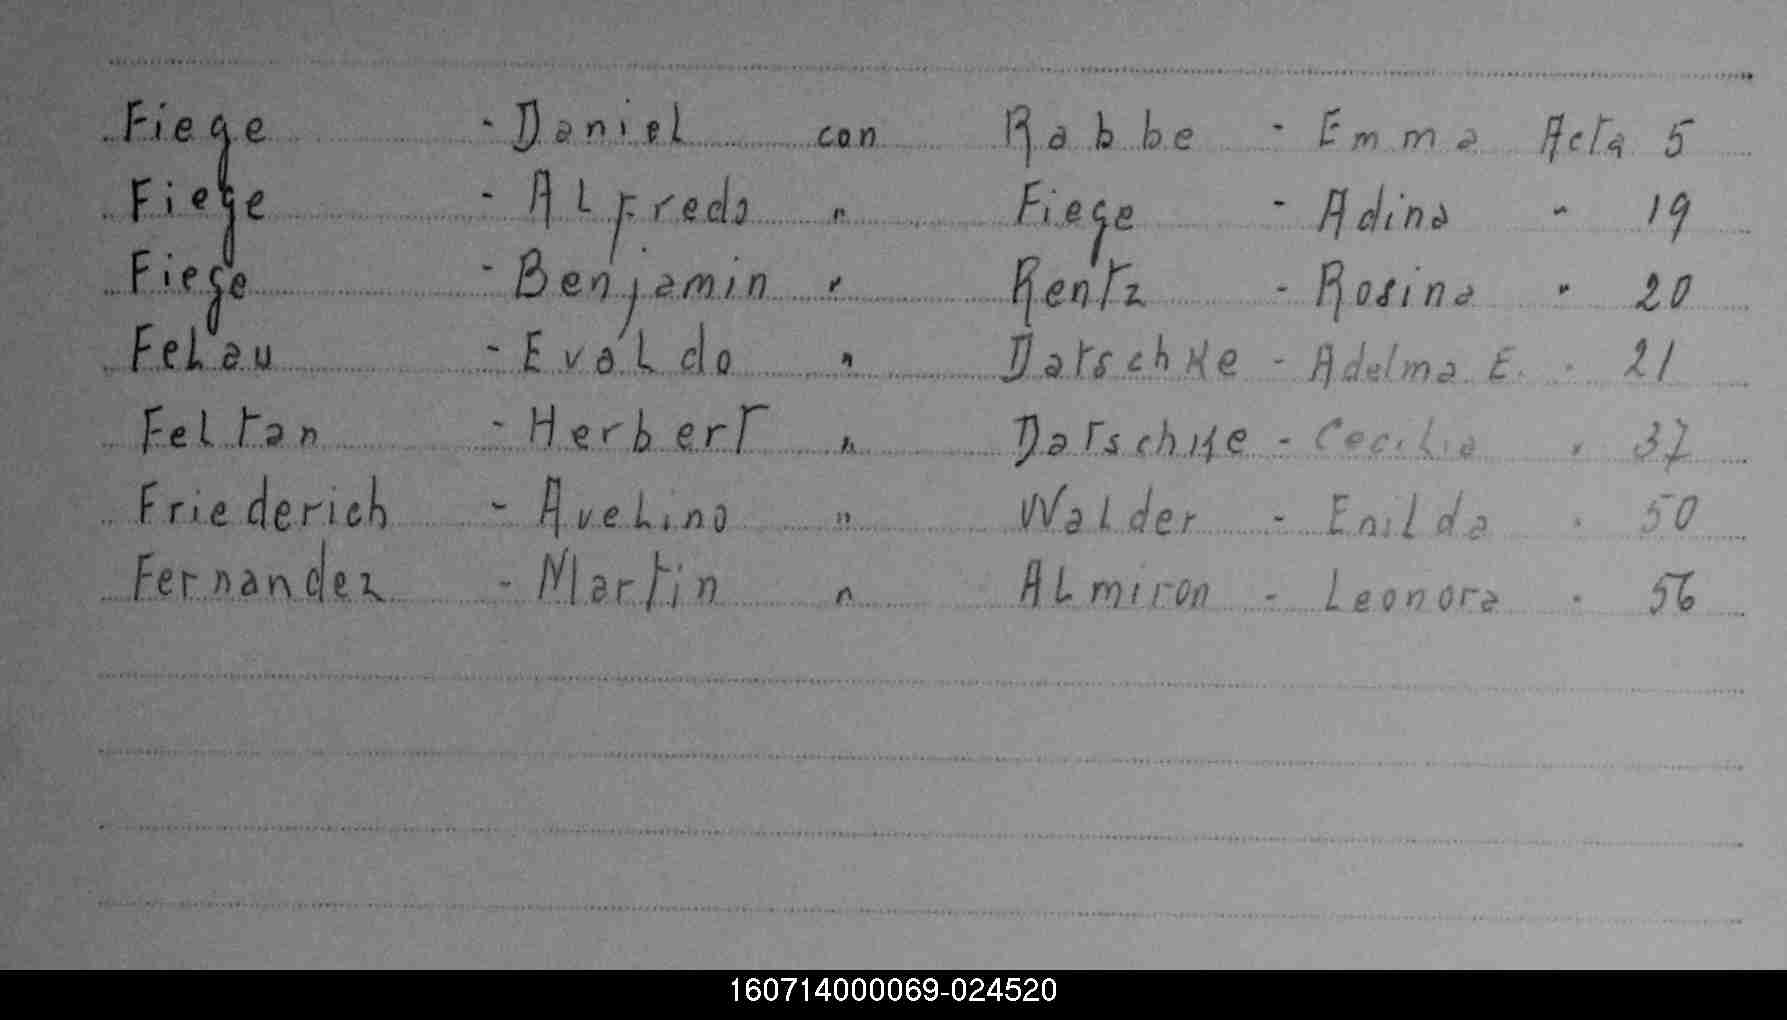 Fiege - Daniel con Rabbe - Emma Acta 5
Fiege - Alfredo " Fiege - Adina " 19
Fiege - Benjamin " Rentz - Rosina " 20
Felau - Evaldo " Datschke - Adelma E. " 21
Feltan - Herbert " Datschke - Cecilia " 37
Friederich - Avelino " Walder - Enilda " 50
Fernandez - Martin " Almiron - Leonora " 56
160714000069-024520